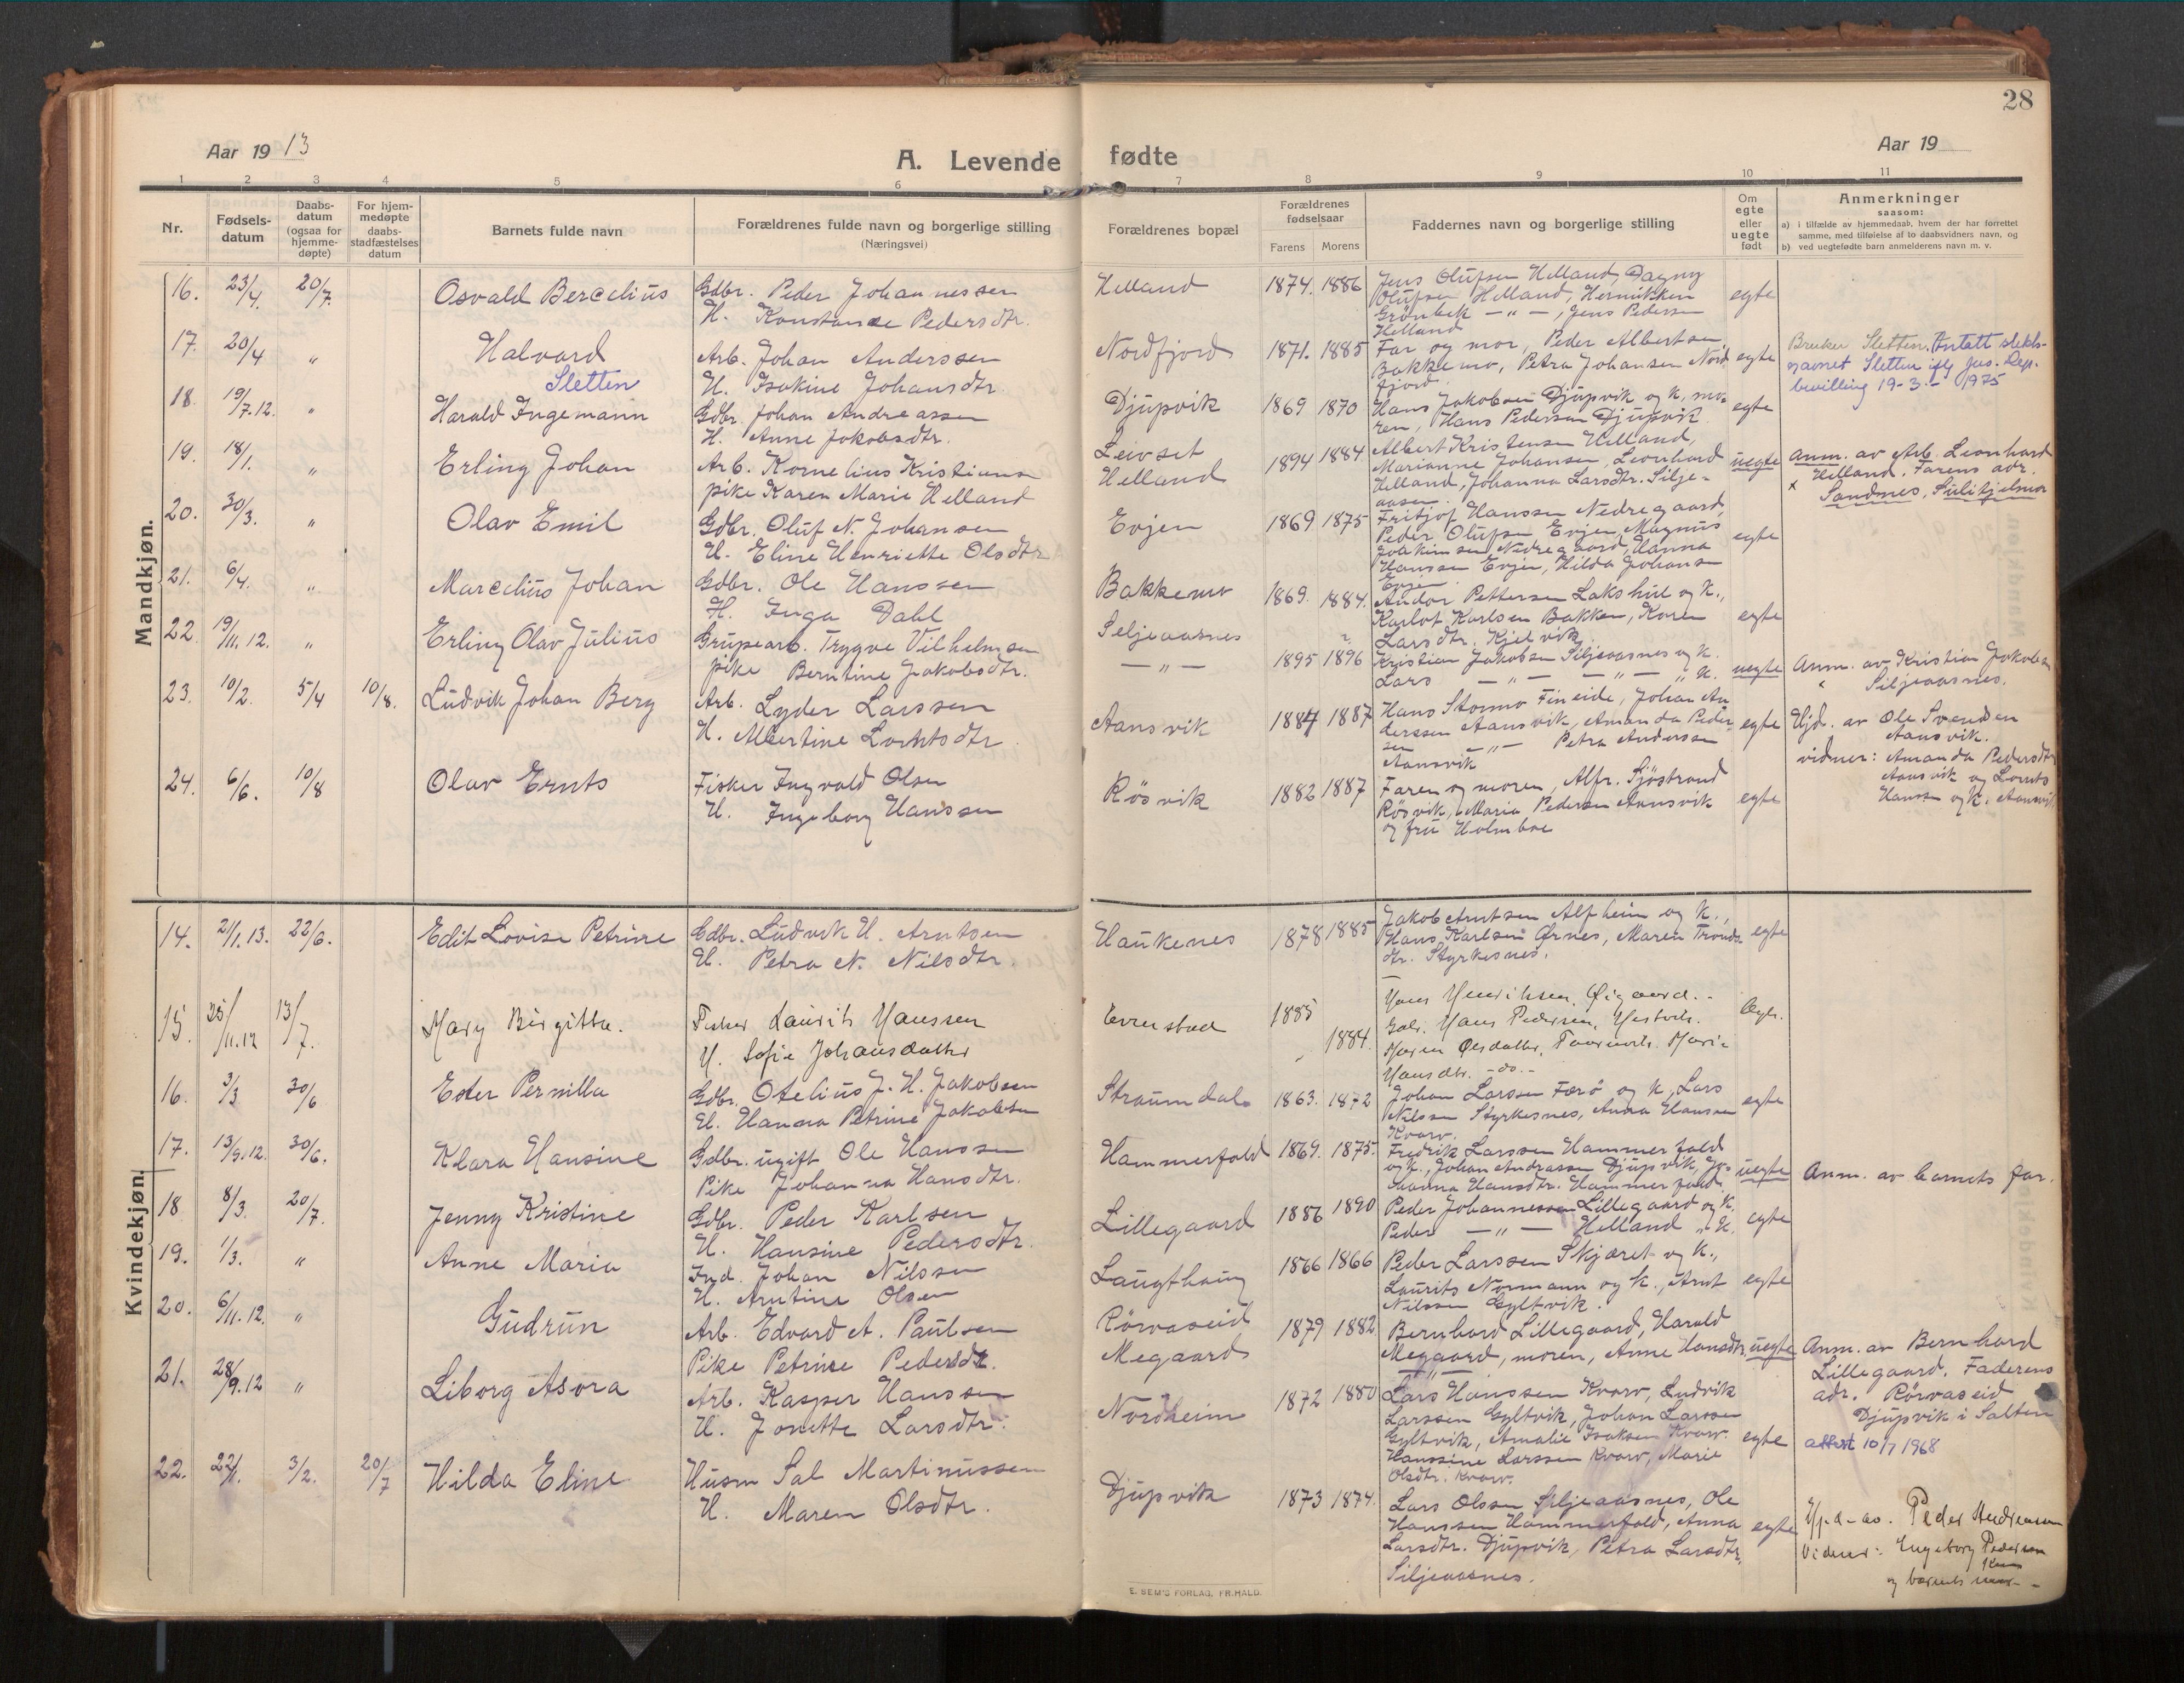 28
Aar 19 13
A. Levende fødte
Aar 19
1 2 3 4 5 6 7 8 9 10 11
Nr.
Fødsels-
datum
Daabs-
datum
(ogsaa for
hjemme-
døpte)
For hjem-
medøpte
daabs-
stadfæstelses
datum
Barnets fulde navn
Forældrenes fulde navn og borgerlige stilling
(Næringsvei)
Forældrenes bopæl
Forældrenes
fødselsaar
Farens Morens
Faddernes navn og borgerlige stilling
Om
egte
eller
uegte
født
Anmerkninger
saasom:
a) i tilfælde av hjemmedaab, hvem der har forrettet
samme, med tilføielse af to daabsvidners navn, og
b) ved uegtefødte barn anmelderens navn m. v.
Mandkjøn.
16. 23/4. 20/7. Osvald Bercelius
Gdbr. Peder Johannessen
H. Konstanse Pedersdtr.
Helland 1874. 1886
Jens Olufsen Helland, Dagny
Olufsen Helland, Hernikken
Grønbek — " —, Jens Pedersen
Helland
egte
17. 20/4 " Halvard
Sletten
Arb. Johan Anderssen
H. Isakine Johansdtr.
Nordfjord 1871. 1885
Far og mor, Peder Albertsen
Bakkemo, Petra Johansen Nord
fjord.
egte
Bruker Sletten. Antatt slekts-
navnet Sletten iflg Jus. Dep.
bevilling 19-3- 1975
18. 19/7.12. " Harald Ingemann
Gdbr. Johan Andreassen
H. Anne Jakobsdtr.
Djupvik 1869 1870
Hans Jakobsen Djupvik og k, mo-
ren, Hans Pedersen Djupvik
egte
19. 18/1. " Erling Johan
Arb. Kornelius Kristians
pike Karen Marie Helland
Leivset
Helland
1894 1884
Albert Kristensen Helland,
Marianne Johansen, Leonhard
Helland, Johanna Larsdtr. Silje-
aasen.
uegte
Anm. av Arb. Leonhard
Helland. Farens adr.
x Sandnes, Sulitjelma
20. 30/3. " Olav Emil
Gdbr. Oluf N. Johansen
H. Eline Henriette Olsdtr
Evjen 1869 1875
Fritjof Hanssen Nedregaard,
Peder Olufsen Evjen, Magnus
Joakimsen Nedregaard, Hanna
Hanssen Evjen, Hilda Johansen
Evjen.
egte
21. 6/4. " Marcelius Johan
Gdbr. Ole Hanssen
H. Inga Dahl
Bakkemo 1869. 1884.
Andor Pettersen Lakshul og k.,
Karlot Karlsen Bakken, Karen
Larsdtr. Kjelvik
egte
22. 19/11.12. " Erling Olav Julius
Grupearb. Trygve Vilhelmsen
pike Berntine Jakobsdtr.
Seljeaasnes
— " —
1895 1896
Kristian Jakobsen Siljeaasnes og k.
Lars — " — — " — " k.
uegte
Anm. av Kristian Jakobsen
Siljeaasnes.
23. 10/2. 5/4 10/8. Ludvik Johan Berg
Arb. Lyder Larssen
H. Albertine Lorntsdtr.
Aansvik 1884 1887
Hans Stormo Fineide, Johan An
derssen Aansvik, Amanda Peder-
sen — " — Petra Anderssen
Aansvik
egte
Hjd. av Ole Svendsen
Aansvik.
vidner: Amanda Pedersdtr
Aansvik og Lornts
Hanssen og k. Aansvik
24. 6/6. 10/8 Olav Ernts
Fisker Ingvald Olsen
H. Ingeborg Hanssen
Røsvik 1882 1887
Faren og moren, Alfr. Sjöstrand
Røsvik, Maria Pedersen Aansvik
og fru Holmboe
egte
Kvindekjøn.
14. 21/1.13. 22/6. Edit Lovise Petrine
Gdbr. Ludvik H. Arntsen
H. Petra N. Nilsdtr.
Haukenes 1878 1885
Jakob Arntsen Alfheim og k.,
Hans Karlsen Ørnes, Maren Tronds
dtr. Styrkesnes.
egte
15. 25/11.12 13/7. Mary Birgitte.
Fisker Laurits Hanssen
H. Sofie Johansdatter
Evenstad 1885
1884.
Hans Henriksen, Øigaard.-
Gdbr. Hans Pedersen, Hestvik.
Maren Olsdatter, Taarnvik. Mari-
Hansdtr. -do.-
Egte.
16. 3/3 30/6 Ester Pernilla
Gdbr. Otelius J. H. Jakobsen
H. Hanna Petrine Jakobsen
Straumdal 1863. 1872
Johan Larssen Færø og k, Lars
Nilssen Styrkesnes, Anna Hansen
Kvarv.
egte
17. 13/9.12. 30/6. Klara Hansine
Gdbr. ugift Ole Hanssen
Pike Johanna Hansdtr.
Hammerfald 1869. 1875.
Fredrik Larssen Hammerfald
og k., Johan Andreassen Djupvik, Jo-
hanna Hansdtr. Hammerfald.
uegte
Anm. av barnets far.
18 8/3. 20/7. Jenny Kristine
Gdbr. Peder Karlsen
H. Hansine Pedersdtr.
Lillegaard 1886 1890
Peder Johannessen Lillegaard og k.
Peder — " — Helland " k.
egte
19. 1/3. " Anne Maria
Ind. Johan Nilssen
H. Arntine Olsen
Laugthaug 1866 1866
Peder Larssen Skjæret og k.,
Laurits Normann og k., Arnt
Nilssen Gyltvik.
egte
20. 6/11.12. " Gudrun
Arb. Edvard A. Paulsen
Pike Petrine Pedersdtr.
Rørvaseid
Megaard
1879 1882
Bernhard Lillegaard, Harald
Megaard, moren, Anne Hansdtr.
uegte
Anm. av Bernhard
Lillegaard. Faderens
adr. Rørvaseid
21. 28/9.12 " Liborg Asora
Arb. Kasper Hanssen
H. Jonette Larsdtr.
Nordheim 1872 1880
Lars Hanssen Kvarv, Ludvik
Larssen Gyltvik, Johan Larssen
Gyltvik, Amalie Isaksen Kvarv.
Hanssine Larssen Kvarv, Marie
Olsdtr. Kvarv.
egte
Djupvik i Salten
attest 10/7 1968
22. 22/1. 3/2. 20/7 Hilda Eline
Husm Sal Martinussen
H. Maren Olsdtr.
Djupvik 1873 1874.
Lars Olssen Siljeaasnes, Ole
Hanssen Hammerfald, Anna
Larsdtr. Djupvik, Petra Larsdtr,
Siljeaasnes.
egte
Hj.d. av. Peder Andreassen
Vidner: Engeborg Pedersen
og barnets
E. SEM'S FORLAG, FR.HALD.